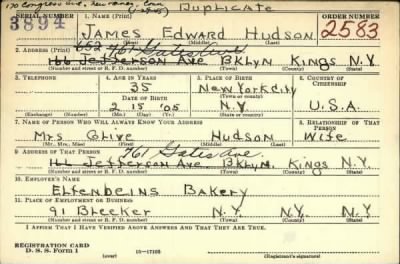 170 Congress Ave, New Haven, Conn
Duplicate
SERIAL NUMBER
1. NAME (Print)
ORDER NUMBER
3894
James Edward Hudson
2583
(First) (Middle) (Last)
2. ADDRESS (Print)
652 761 Gates Ave
166 Jefferson Ave BKLyn Kings N.Y.
(Number and street or R. F. D. number) (Town) (County) (State)
3. TELEPHONE
4. AGE IN YEARS
5. PLACE OF BIRTH
6. COUNTRY OF CITIZENSHIP
35
New York City
DATE OF BIRTH
(Town or county)
2 15 '05
N.Y
U.S.A.
(Exchange) (Number) (Mo.) (Day) (Yr.) (State or country)
7. NAME OF PERSON WHO WILL ALWAYS KNOW YOUR ADDRESS
8. RELATIONSHIP OF THAT PERSON
Mrs Olive Hudson Wife
(Mr., Mrs., Miss) (First) (Middle) (Last)
9. ADDRESS OF THAT PERSON
761 Gates Ave.
166 Jefferson Ave BKLyn. Kings N.Y.
(Number and street or R. F. D. number) (Town) (County) (State)
10. EMPLOYER'S NAME
Elfenbeins Bakery
11. PLACE OF EMPLOYMENT OR BUSINESS
91 Bleecker N.Y. N.Y. N.Y.
(Number and street or R. F. D. number) (Town) (County) (State)
I AFFIRM THAT I HAVE VERIFIED ABOVE ANSWERS AND THAT THEY ARE TRUE.
REGISTRATION CARD
D. S. S. Form 1
(over)
16-17105
(Registrant's signature)